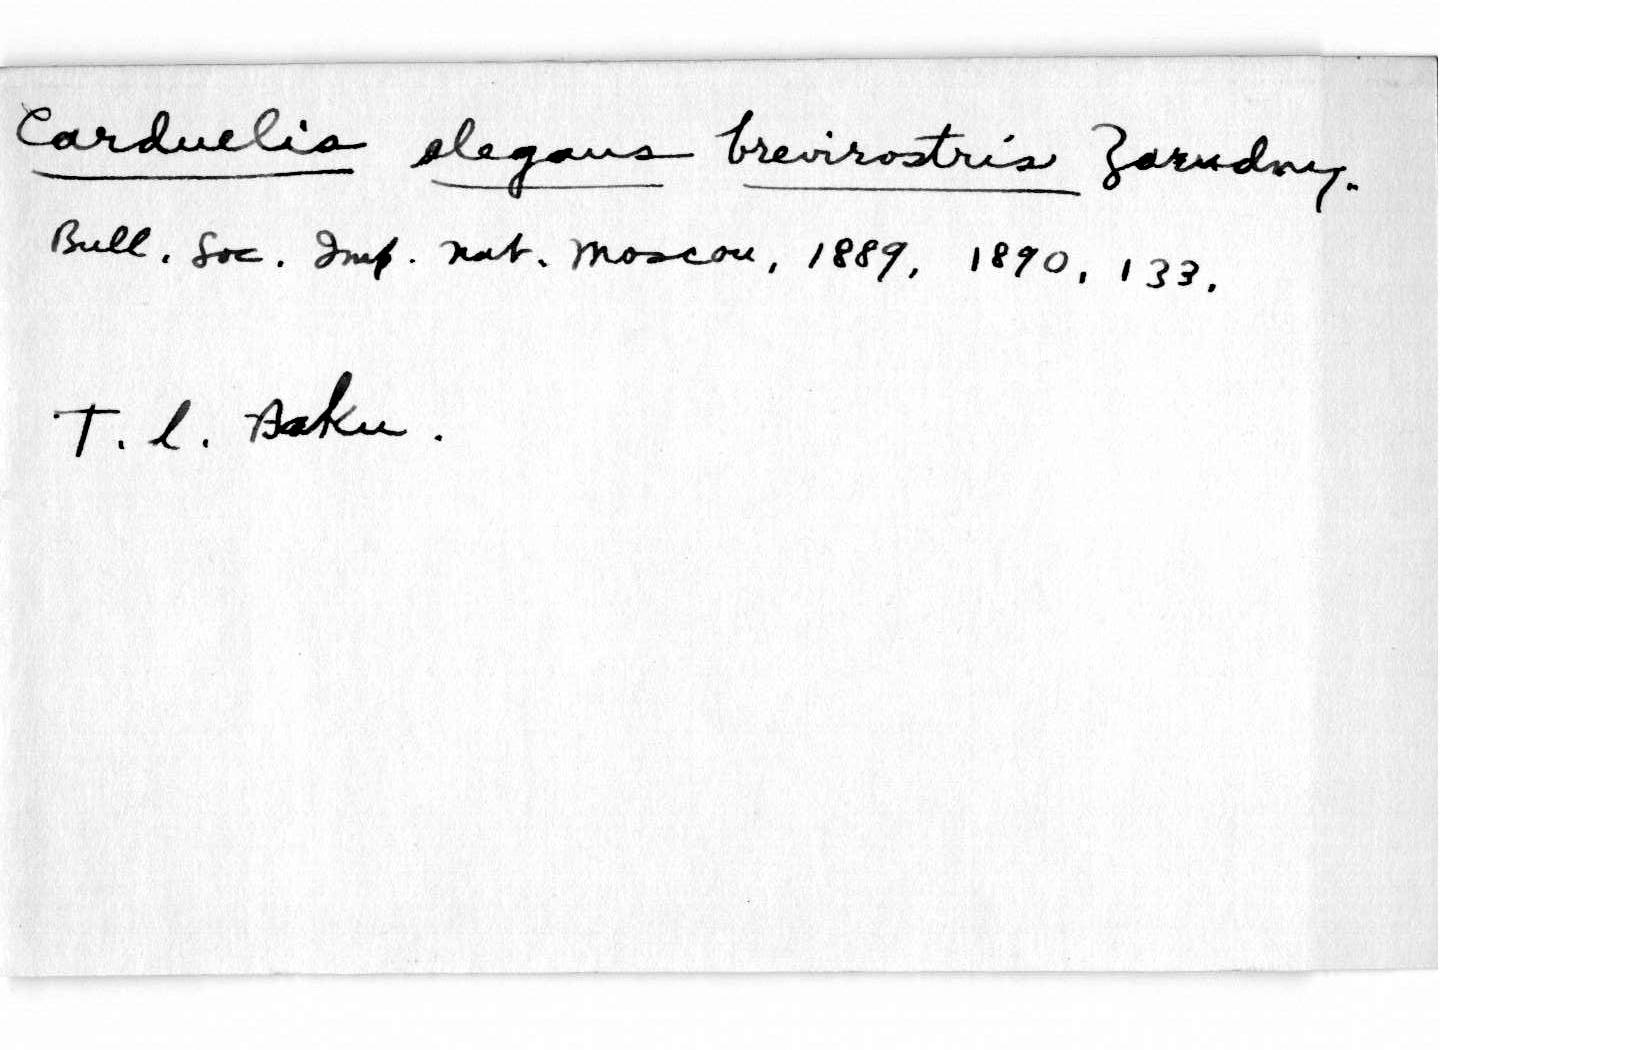 Carduelis elegans brevirostris Zarudny.
Bull. Soc. Imp. nat. Moscou, 1889, 1890, 133.
T. l. Baku.